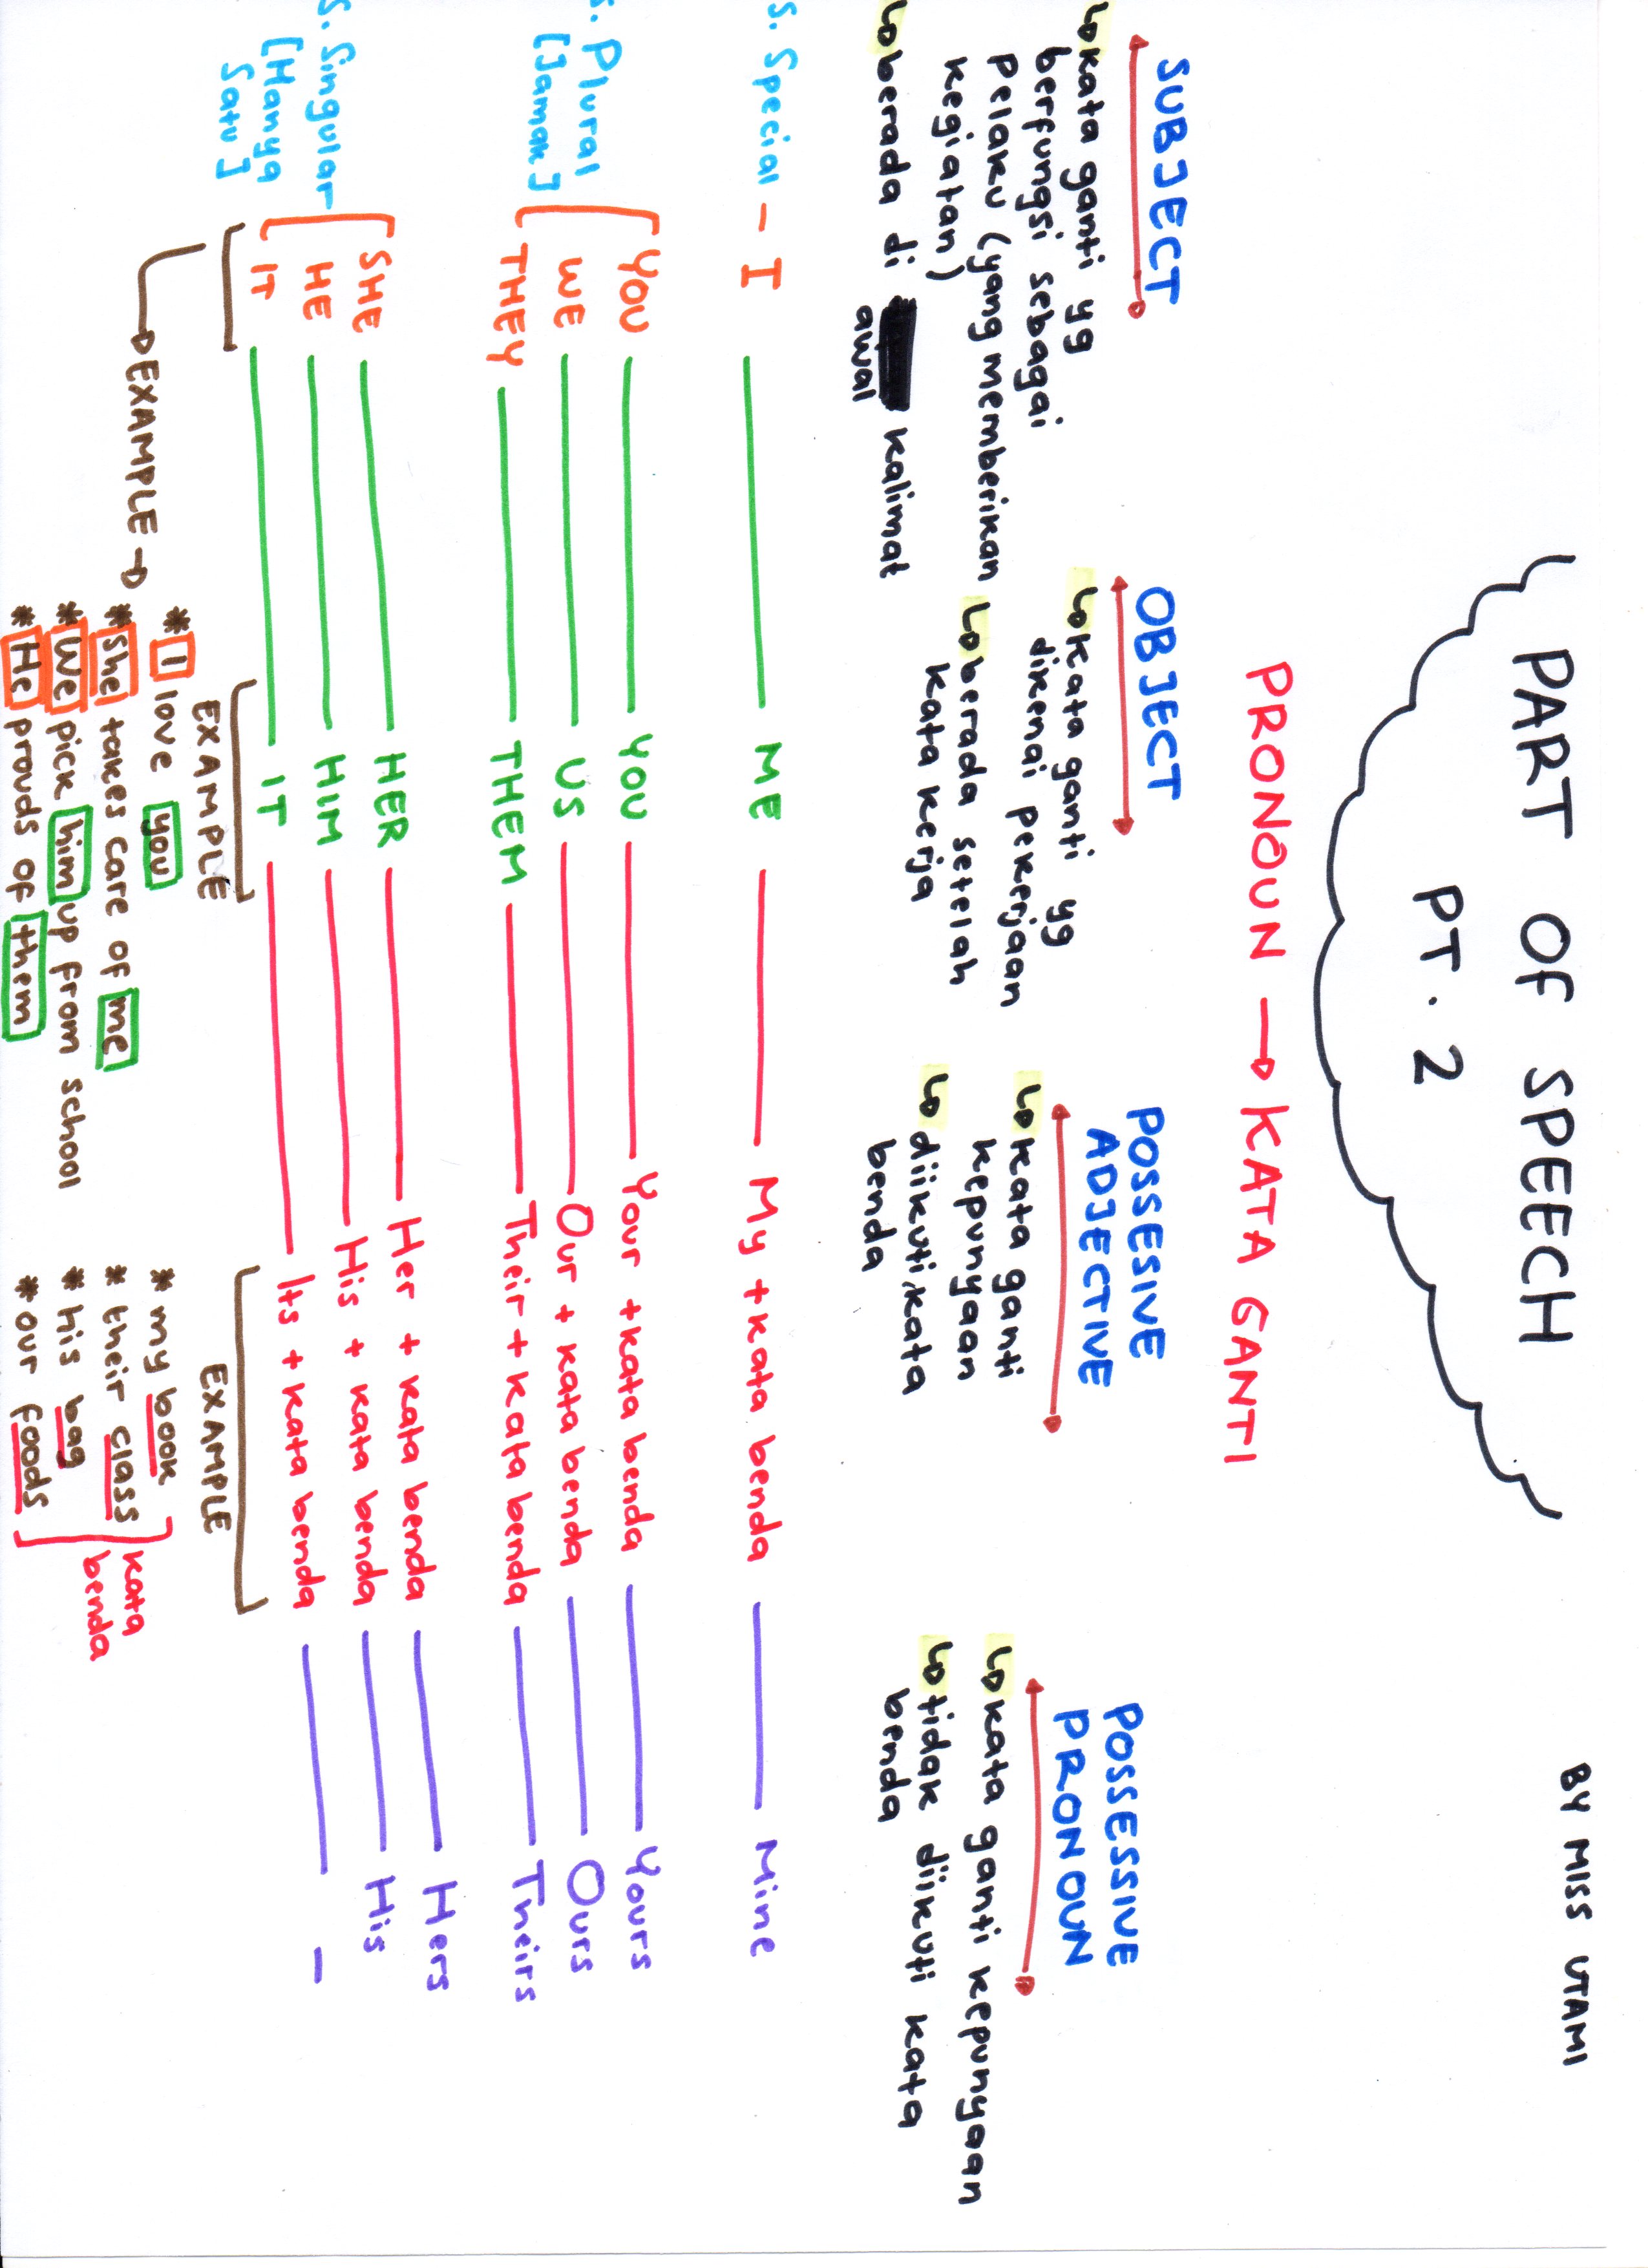 BY MISS UTAMI
PART OF SPEECH
PT. 2
PRONOUN → KATA GANTI
SUBJECT
↳ kata ganti yg
berfungsi sebagai
Pelaku (yang memberikan
kegiatan)
↳ berada di kalimat
awal
OBJECT
↳ kata ganti yg
dikenai pekerjaan
↳ berada setelah
kata kerja
POSSESIVE
ADJECTIVE
↳ kata ganti
kepunyaan
↳ diikuti kata
benda
POSSESSIVE
PRONOUN
↳ kata ganti kepunyaan
↳ tidak diikuti kata
benda
S. Special - I — ME — My + kata benda — Mine
S. Plural
[Jamak]
YOU — YOU — Your + kata benda — Yours
WE — US — Our + kata benda — Ours
THEY — THEM — Their + kata benda — Theirs
S. Singular
[Hanya
Satu]
SHE — HER — Her + kata benda — Hers
HE — HIM — His + kata benda — His
IT — IT — Its + kata benda — -
EXAMPLE →
EXAMPLE
* I love you
* She takes care of me
* We pick him up from school
* He prouds of them
EXAMPLE
* my book
* their class
* his bag
* our foods
kata
benda